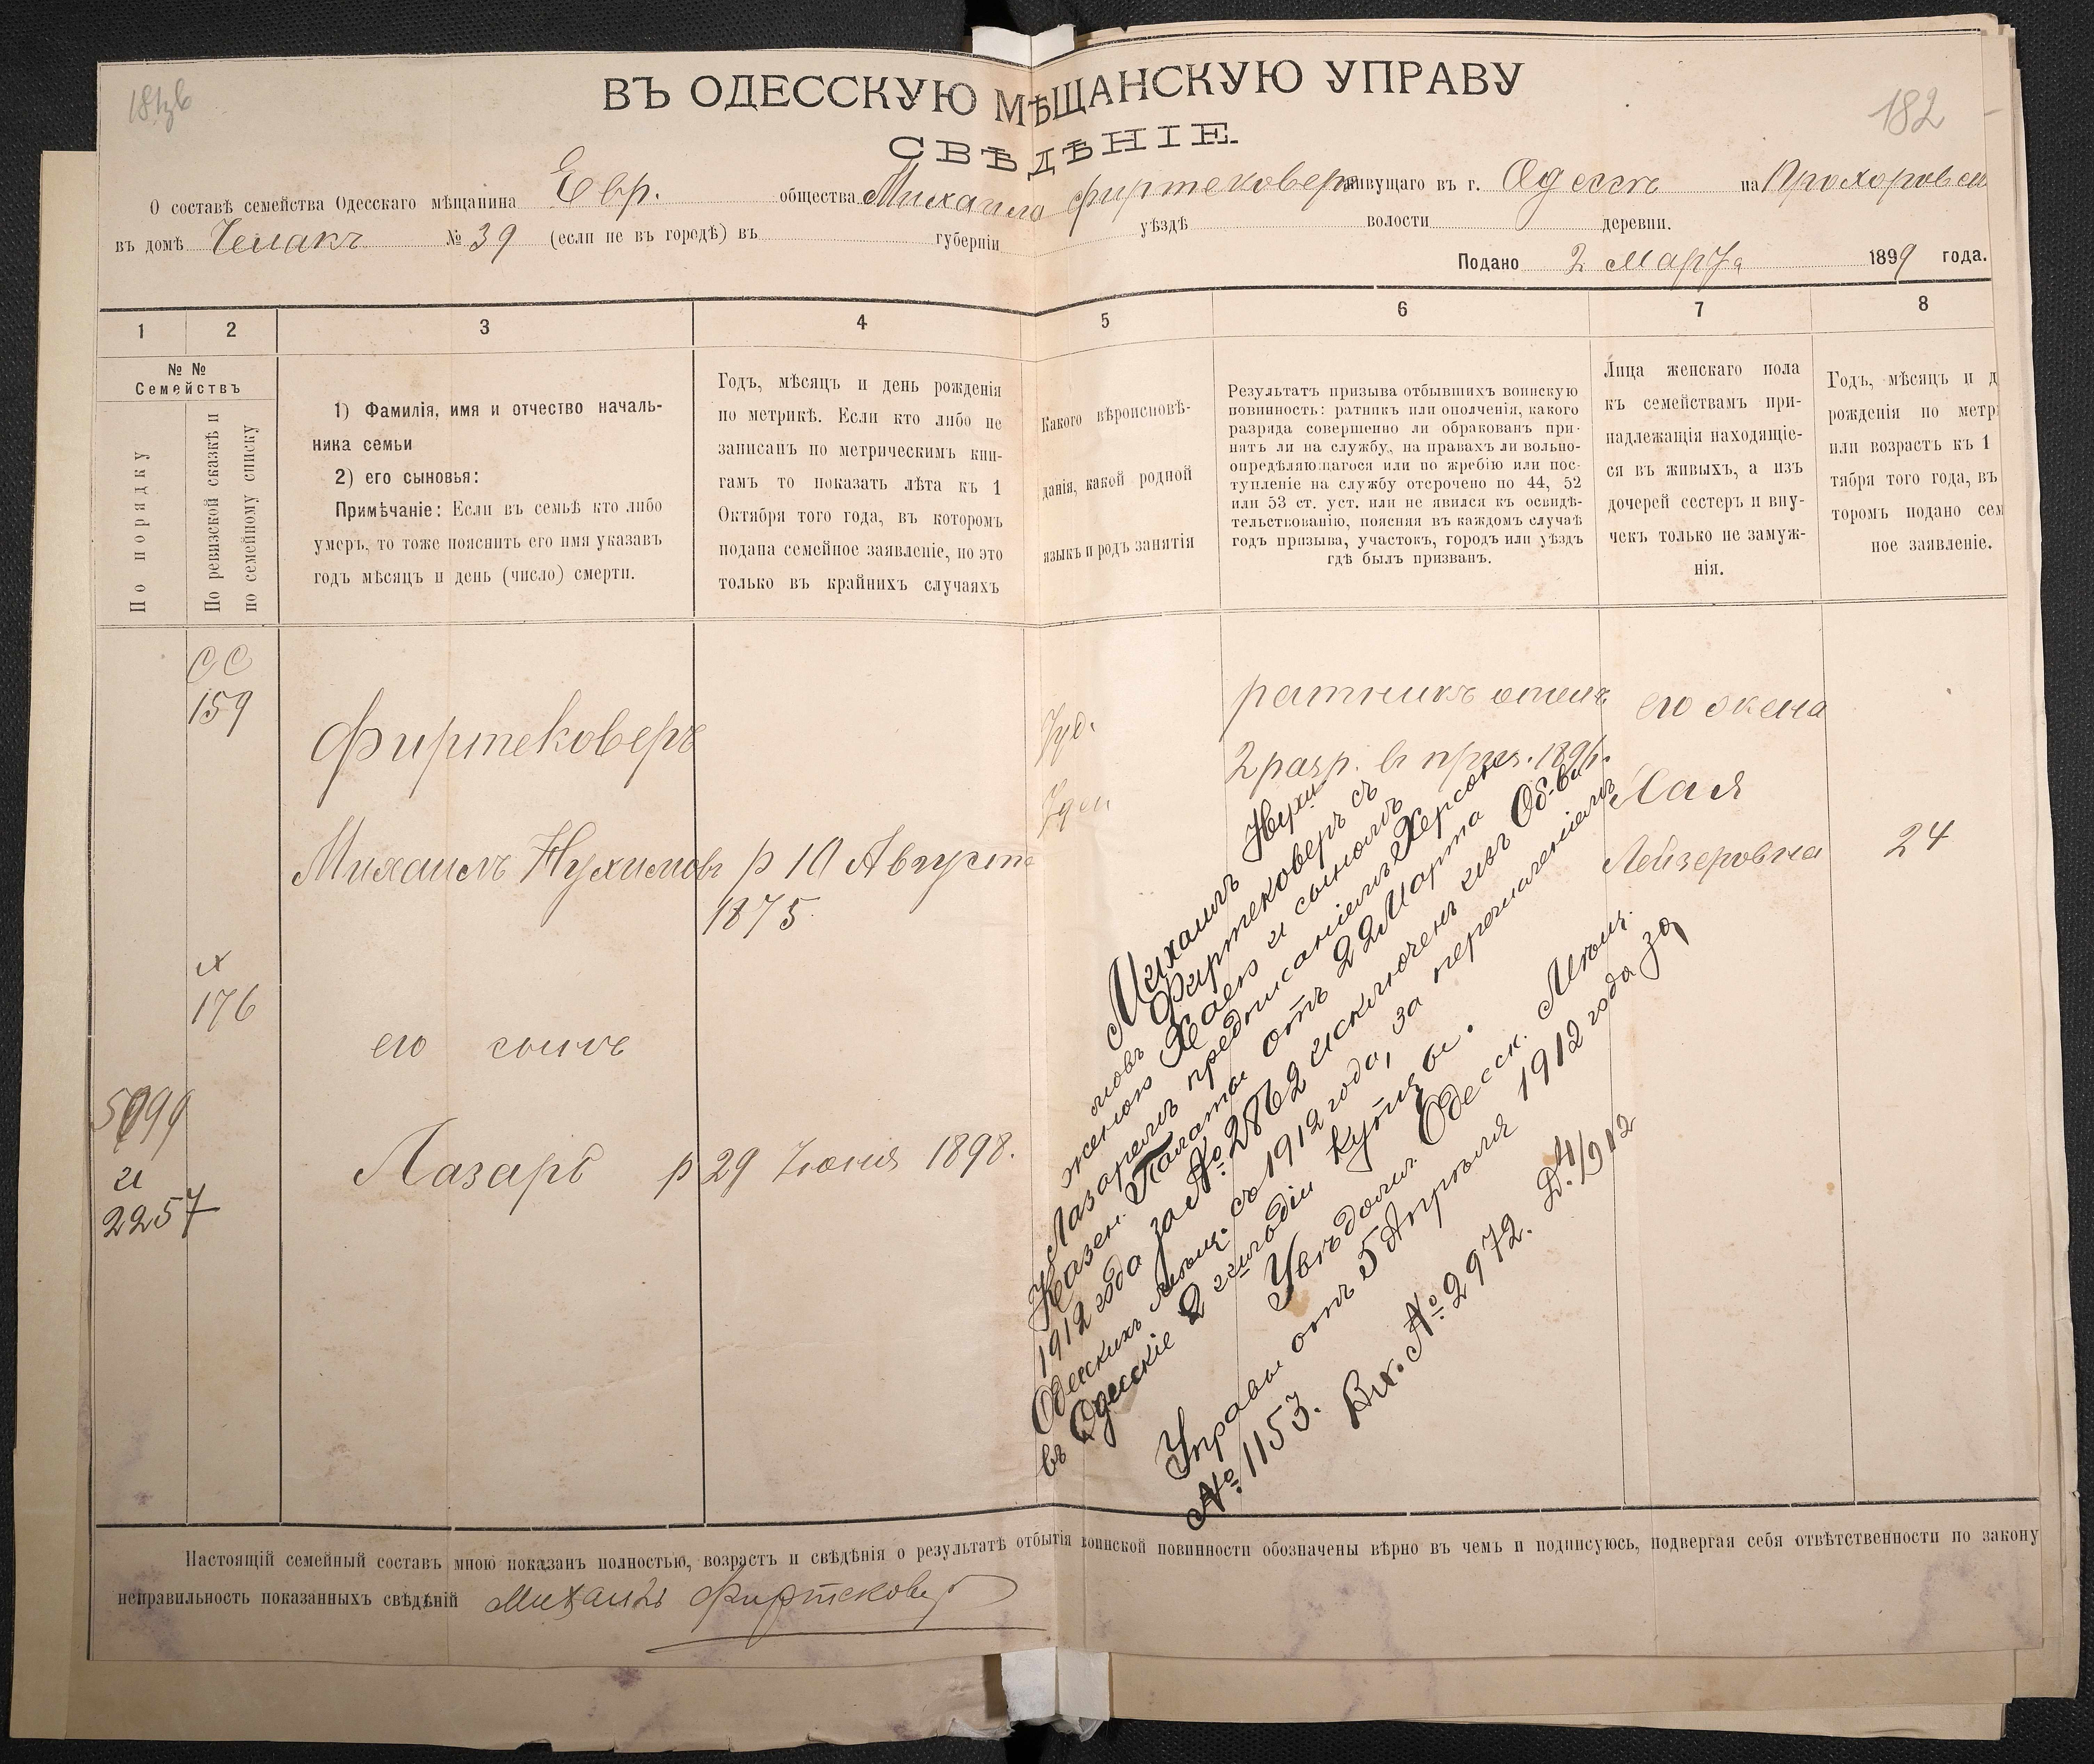 182
ВЪ ОДЕССКУЮ МѢЩАНСКУЮ УПРАВУ
СВѢДѢНІЕ.
О составѣ семейства Одесскаго мѣщанина Евр. общества Михаила Фиртековеръ живущаго въ г. Одессѣ на Прохоровск
въ домѣ Челакъ № 39 (если не въ городѣ) въ губерніи уѣздѣ волости деревни.
Подано 2 Марта 1899 года.
1 2 3 4 5 6 7 8
№ №
Семействъ
По порядку
По ревизской сказкѣ и
по семейному списку
1) Фамилія, имя и отчество началь-
ника семьи
2) его сыновья:
Примѣчаніе: Если въ семьѣ кто либо
умеръ, то тоже пояснить его имя указавъ
годъ мѣсяцъ и день (число) смерти.
Годъ, мѣсяцъ и день рожденія
по метрикѣ. Если кто либо не
записанъ по метрическимъ кни-
гамъ то показать лѣта къ 1
Октября того года, въ которомъ
подана семейное заявленіе, но это
только въ крайнихъ случаяхъ
Какого вѣроисповѣ-
данія, какой родной
языкъ и родъ занятія
Результатъ призыва отбывшихъ воинскую
повинность: ратникъ или ополченія, какого
разряда совершенно ли обракованъ при-
нятъ ли на службу, на правахъ ли вольно-
опредѣляющагося или по жребію или пос-
тупленіе на службу отсрочено по 44, 52
или 53 ст. уст. или не явился къ освидѣ-
тельствованію, поясняя въ каждомъ случаѣ
годъ призыва, участокъ, городъ или уѣздъ
гдѣ былъ призванъ.
Лица женскаго пола
къ семействамъ при-
надлежащія находящіе-
ся въ живыхъ, а изъ
дочерей сестеръ и вну-
чекъ только не замуж-
нія.
Годъ, мѣсяцъ и д
рожденія по метр
или возрастъ къ 1
тября того года, въ
торомъ подано сем
ное заявленіе.
СС
159
Фиртековеръ
Іуд.
ратникъ ополч
2 разр. въ приз. 1896.
его жена
Хая
Лейзеровна
24
Михаилъ Нухимовъ
р 10 Августа
1875
176
его сынъ
и
2257
Лазарь р 29 Іюня 1898.
Михаилъ Нухи
мовъ Фиртековеръ съ
женою Хаею и сыномъ
Лазаремъ предписаніемъ Херсонс
Казен. Палаты отъ 22 Марта
1912 года за № 2862 исключенъ изъ Об-ва
Одесскихъ мѣщ. съ 1912 года, за перечисленіемъ
въ Одесскіе 2 гильдіи купцы.
Увѣдомл. Одесск. Мѣщ.
Управы отъ 5 Апрѣля 1912 года за
№ 1153. Вх. № 2972. Д. 4/912
Настоящій семейный составъ мною показанъ полностью, возрастъ и свѣдѣнія о результатѣ отбытія воинской повинности обозначены вѣрно въ чемъ и подписуюсь, подвергая себя отвѣтственности по закону
неправильность показанныхъ свѣдѣній Михаилъ Фиртековеръ